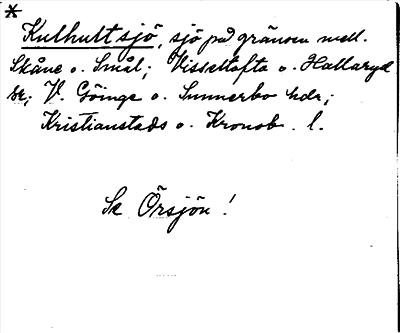 *
Kulhultsjö, sjö på gränsen mell.
Skåne o. Smål; Visseltofta o. Hallaryd
sr; V. Göinge o. Sunnerbo hdr;
Kristianstads o. Kronob. l.
Se Örsjön!